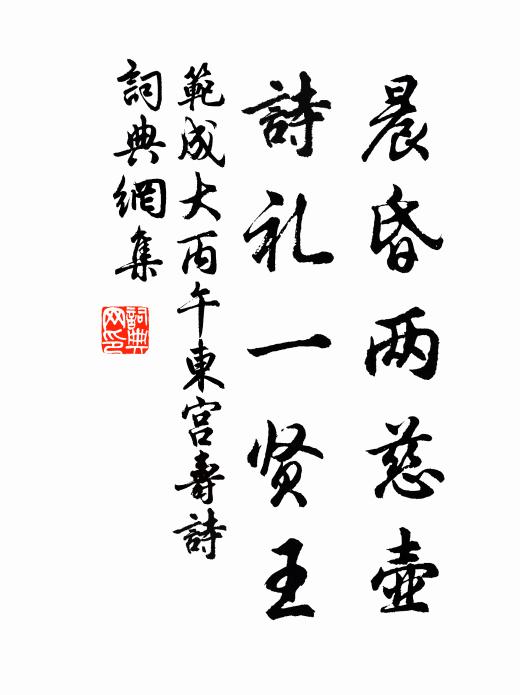 晨昏两慈壺
詩礼一贤王
範成大丙午東宫壽詩
詞典網集
詞典网印